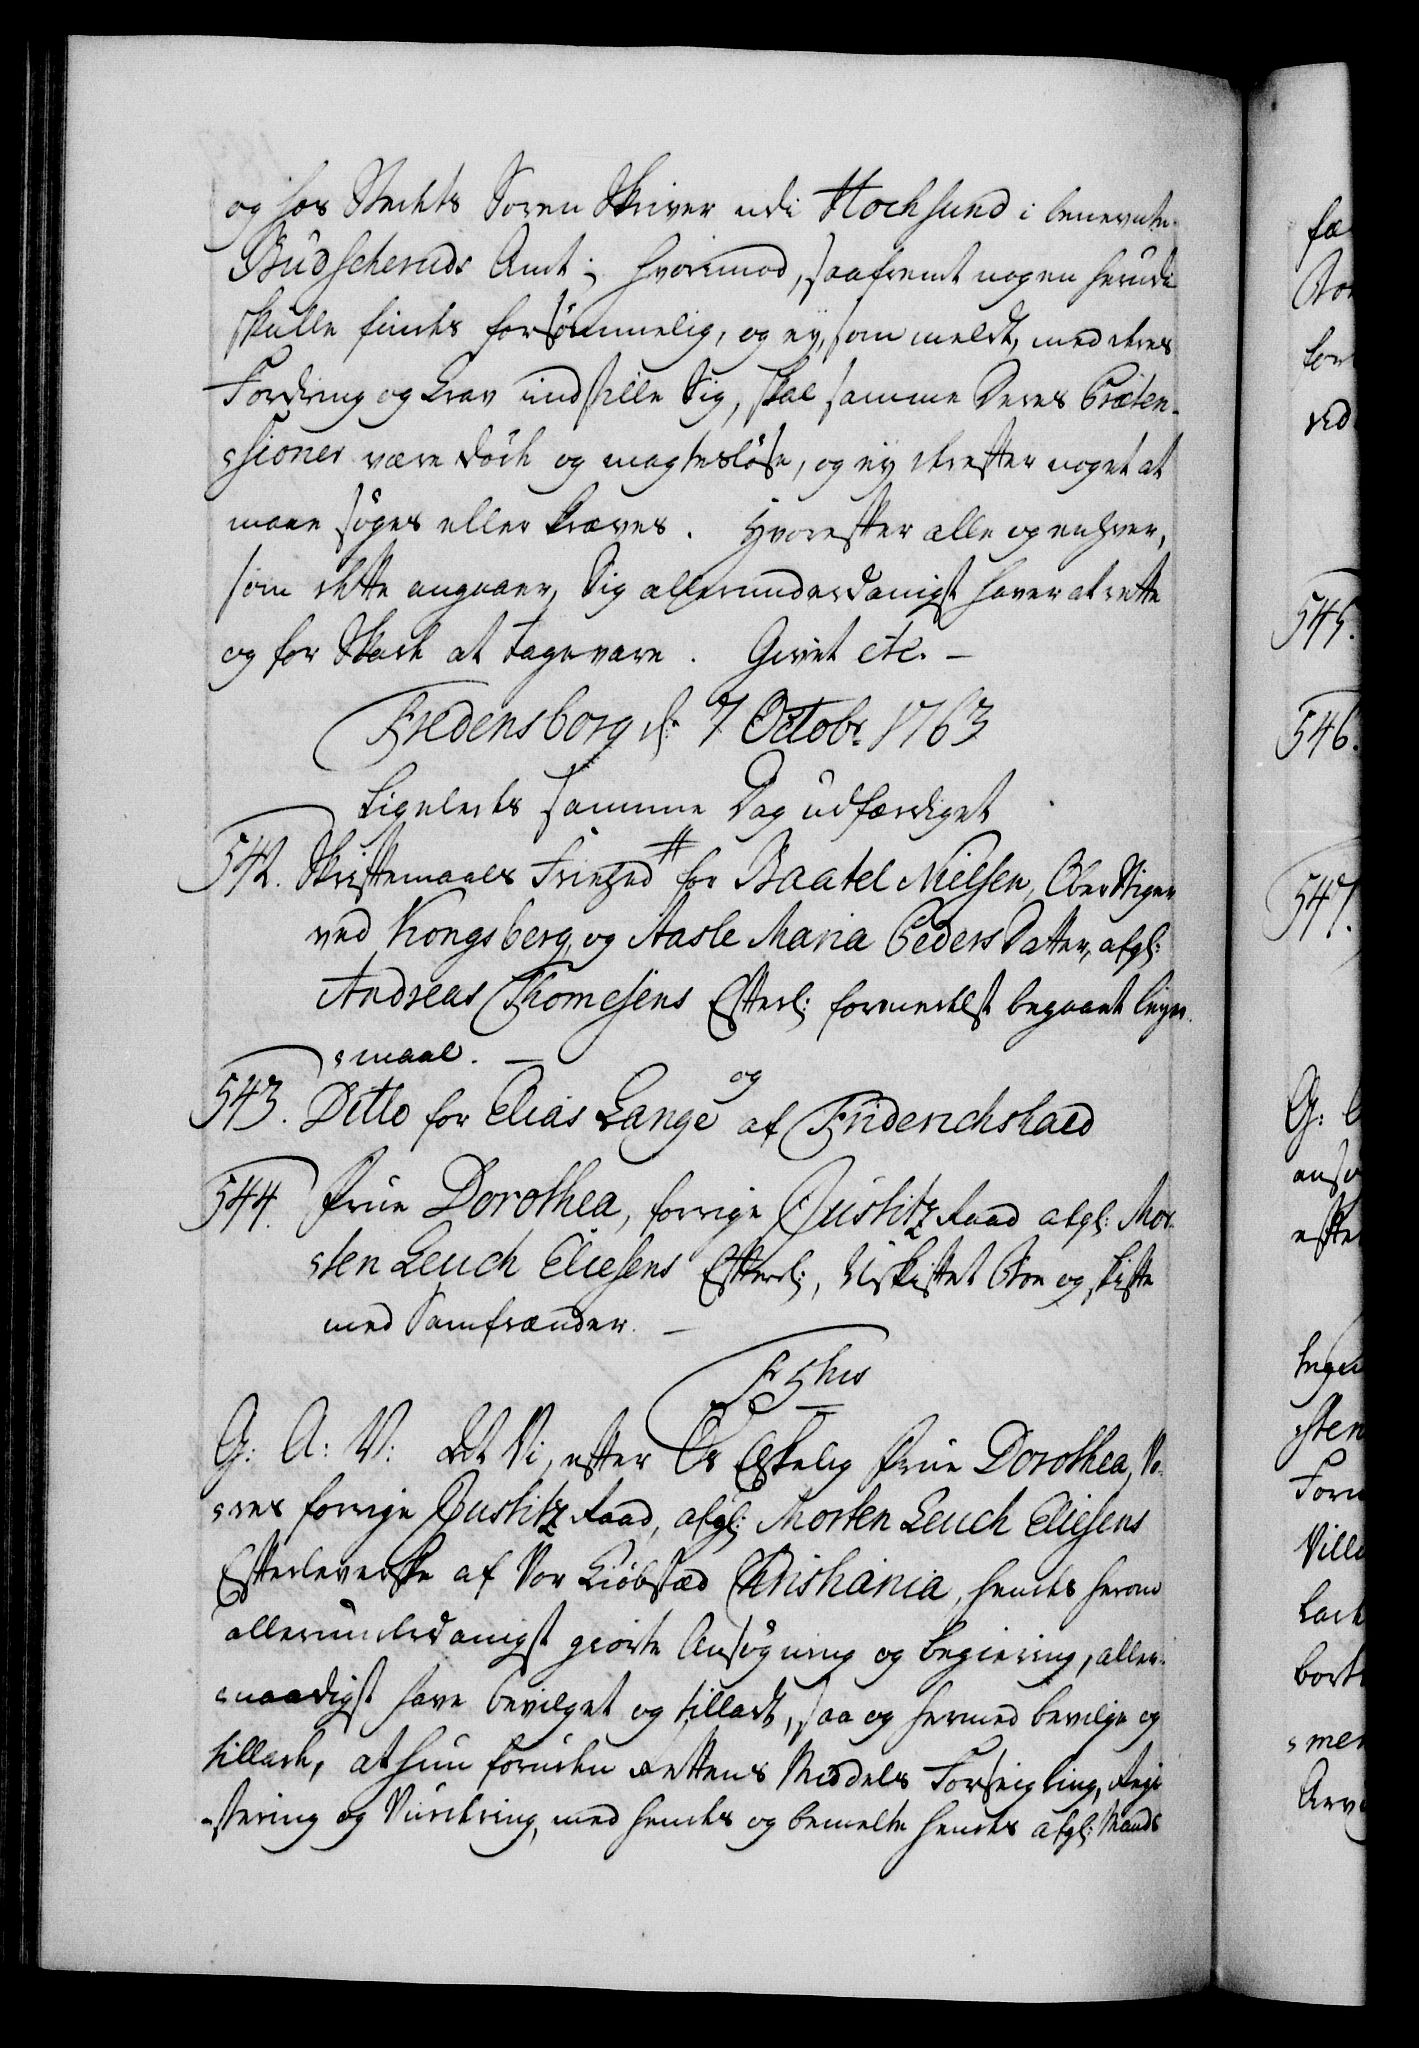 og hos Stedets Soren Skriver udi Hochsund i benevnte
Budscheruds Amt; hvorimod, saafremt nogen herudi
skulle findes forsømmelig, og ey, som meldt, med deres
Fordring og Krav indstille Sig, skal samme Deres Præten-
sioner være døde og magtesløse, og ey derefter noget at
maae søges eller kræves. Hvorefter alle og enhver,
som dette angaaer, Sig allerunderdanigst haver at rette
og for Skade at tage vare. Givet etc. –
Fredensborg d: 7 Octobr. 1763
Ligeledes samme Dag udfærdiget
542. Skriftemaals Frihed # for Baatel Nielsen, Ober Stiger
ved Kongsberg, og Aasle Maria Peders Datter, afgl:
Andreas Thomesens Efterl: formedelst begaaet leyer-
maal. –
543. Ditto for Elias Lange og af Friderichshald
544. Frue Dorothea, forrige Justitz Raad afgl: Mor-
sten Leuch Eliesens Efterl:, Uskiftet Boe og skifte
med Samfrænder. –
F 5 hus
G: A: V: At Vi, efter Os Elskelig Frue Dorothea, Vo-
res forrige Justitz Raad, afgl: Morten Leuch Eliesens
Efterleverske af Vor Kiøbstæd Christiania, hendes herom
allerunderdanigst giorte Ansøgning og begiering, aller-
naadigst have bevilget og tilladt, saa og hermed bevilge og
tillade, at hun foruden Rettens Middels Forseigling, Regi-
stering og Vurdering, med hendes og bemelte hendes afgl: Mands
fæ
for
ved
545.
546.
547.
G:
efter
sten
Ville
bort